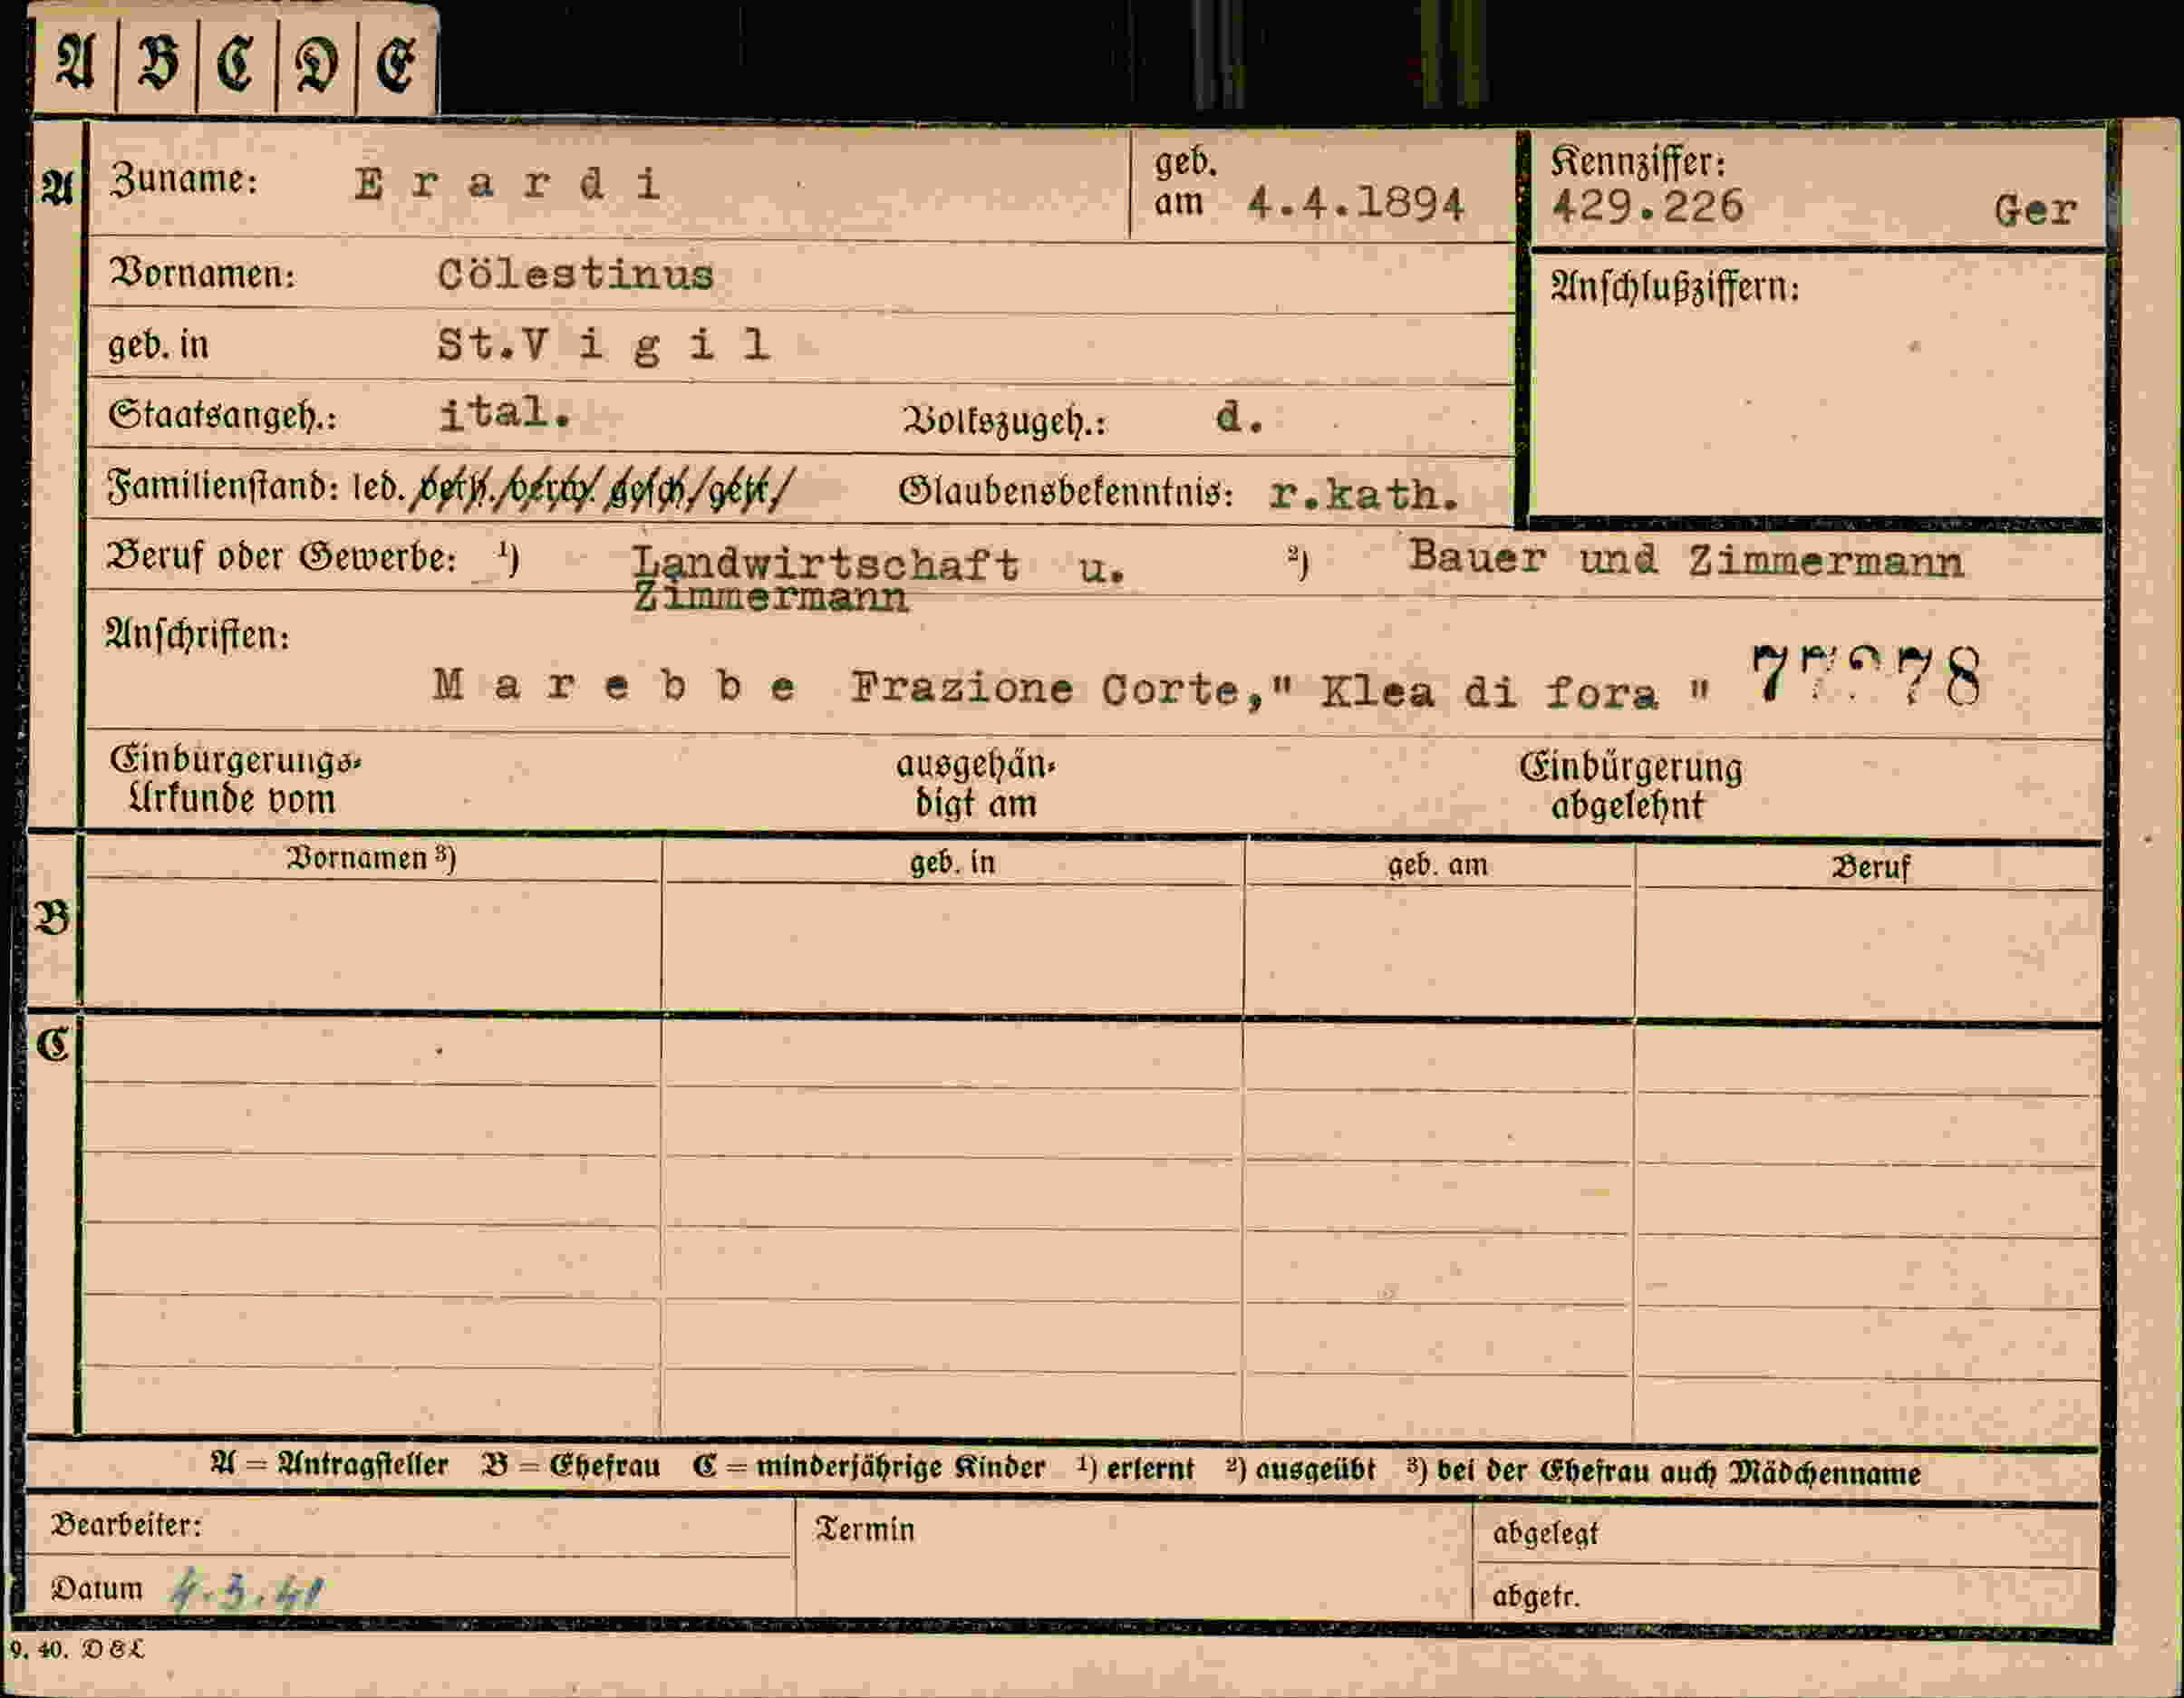 A B C D E
A Zuname: Erardi geb. am 4.4.1894 Kennziffer: 429.226 Ger
Vornamen: Cölestinus Anschlußziffern:
geb. in St.Vigil
Staatsangeh.: ital. Volkszugeh.: d.
Familienstand: led. verh. verw. gesch. getr. Glaubensbekenntnis: r.kath.
Beruf oder Gewerbe: ¹) Landwirtschaft u. ²) Bauer und Zimmermann
Zimmermann
Anschriften:
Marebbe Frazione Corte," Klea di fora "
Einbürgerungs- ausgehän- Einbürgerung
Urkunde vom digt am abgelehnt
Vornamen ³) geb. in geb. am Beruf
B
C
A = Antragsteller B = Ehefrau C = minderjährige Kinder ¹) erlernt ²) ausgeübt ³) bei der Ehefrau auch Mädchenname
Bearbeiter: Termin abgelegt
Datum 4.3.41 abgetr.
9. 40. DEL